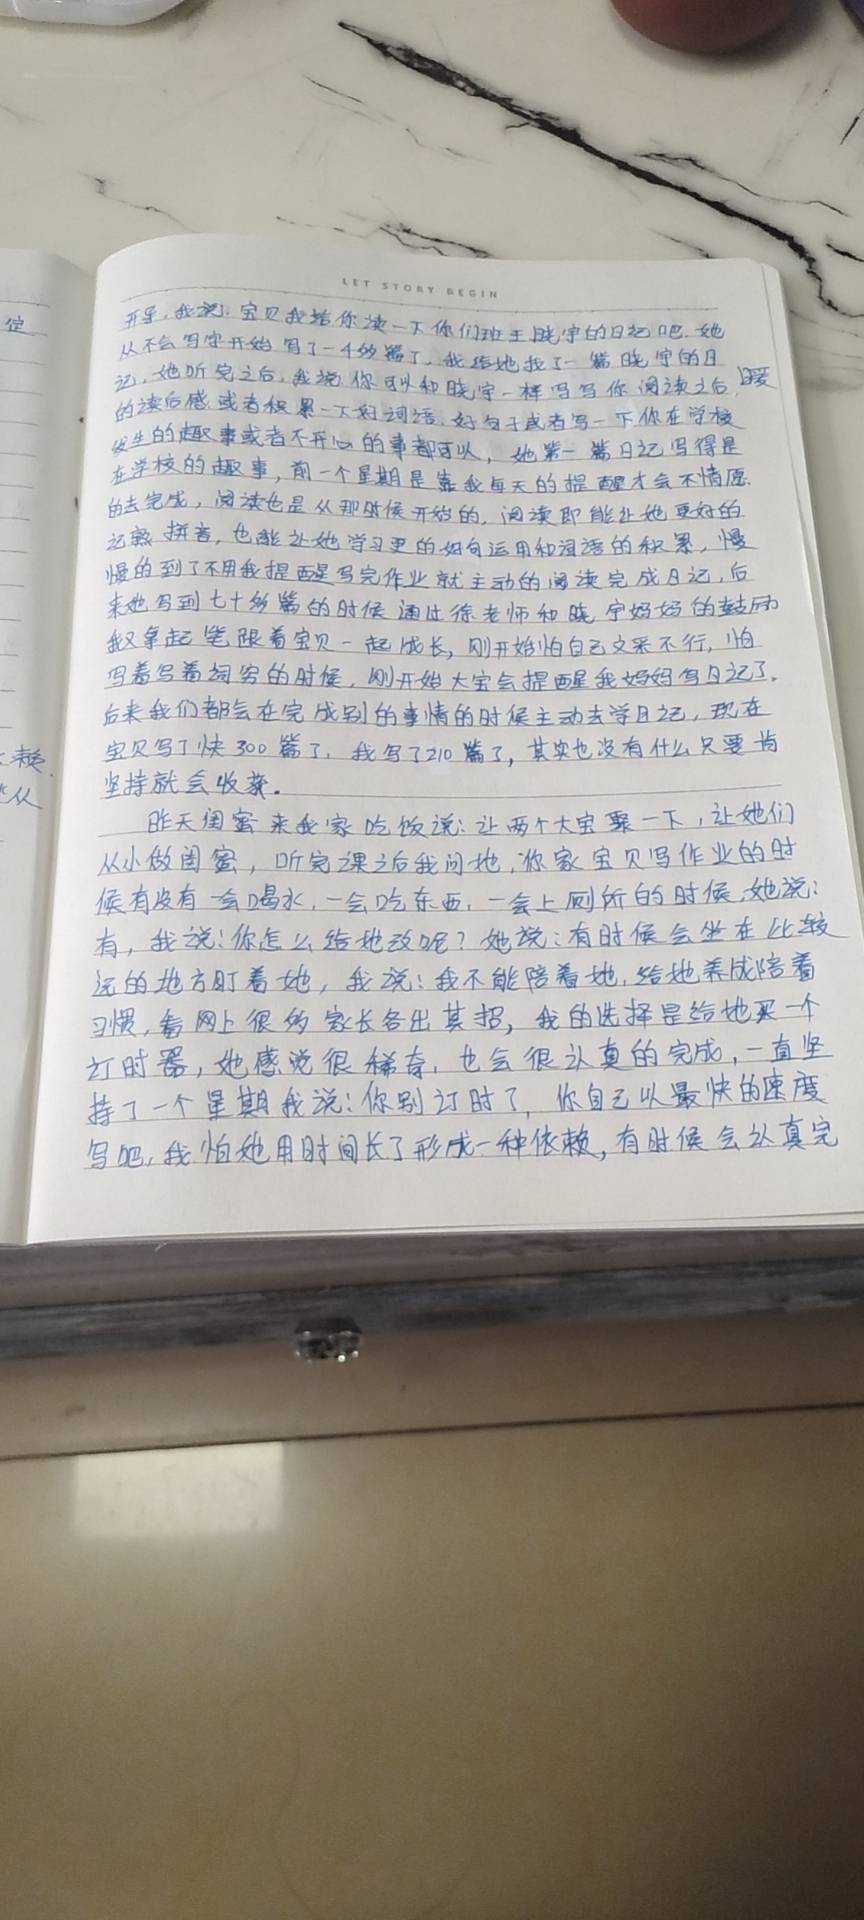 LET STORY BEGIN
开导，我说：宝贝我给你读一下你们班王晓宇的日记吧．她
从不会写字开始写了一千多篇了，我给她找了一篇晓宇的日
记，她听完之后，我说你可以和晓宇一样写写你阅读之后
的读后感或者积累一下好词语．好句子或者写一下你在学校
发生的趣事或者不开心的事都可以，她第一篇日记写得是
在学校的趣事，前一个星期是靠我每天的提醒才会不情愿
的去完成，阅读也是从那时候开始的，阅读即能让她更好的
记熟拼音，也能让她学习更的好句运用和词语的积累，慢
慢的到了不用我提醒写完作业就主动的阅读完成日记，后
来她写到七十多篇的时候通过徐老师和晓宇妈妈的鼓励
我又拿起笔跟着宝贝一起成长，刚开始怕自己文采不行，怕
写着写着词穷的时候，刚开始大宝会提醒我妈妈写日记了．
后来我们都会在完成别的事情的时候主动去学日记，现在
宝贝写了快300篇了，我写了210篇了，其实也没有什么只要肯
坚持就会收获．
昨天闺蜜来我家吃饭说：让两个大宝聚一下，让她们
从小做闺蜜，听完课之后我问她，你家宝贝写作业的时
候有没有一会喝水，一会吃东西，一会上厕所的时候，她说：
有，我说：你怎么给她改呢？她说：有时候会坐在比较
远的地方盯着她，我说：我不能陪着她，给她养成陪着
习惯，看网上很多家长各出其招，我的选择是给她买一个
订时器，她感觉很稀奇，也会很认真的完成，一直坚
持了一个星期我说：你别订时了，你自己以最快的速度
写吧，我怕她用时间长了形成一种依赖，有时候会认真完